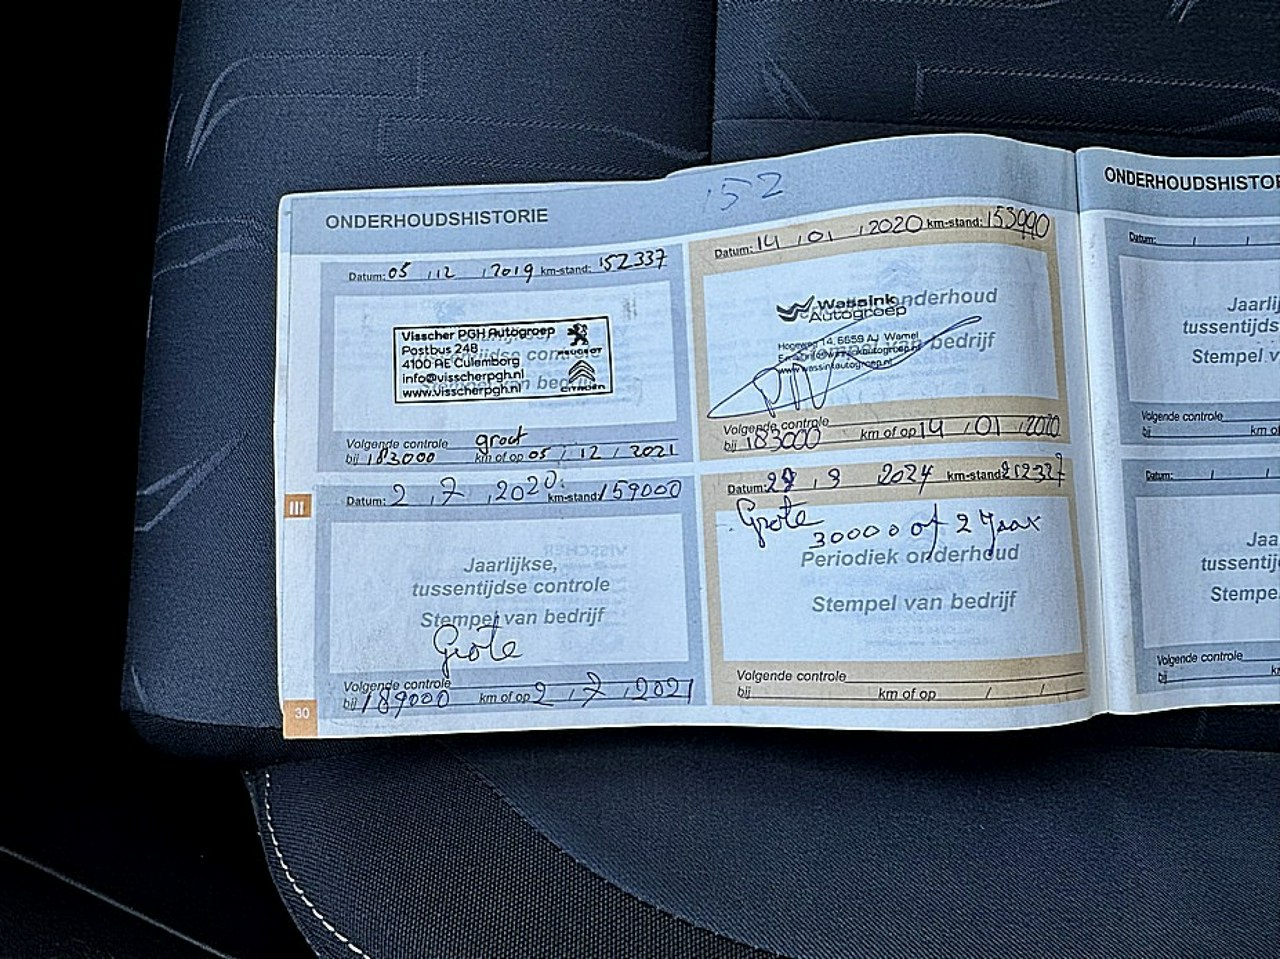 152
ONDERHOUDSHISTORIE
Datum: 05 / 12 / 2019 km-stand: 152337
Visscher PGH Autogroep
Postbus 248
4100 AE Culemborg
info@visscherpgh.nl
www.visscherpgh.nl
PEUGEOT
CITROËN
Volgende controle groot
bij 182000 km of op 05 / 12 / 2021
Datum: 14 / 01 / 2020 km-stand: 153990
Wassink
Autogroep
onderhoud
Hogeweg 14, 6659 AJ Wamel
www.wassinkautogroep.nl
Stempel van bedrijf
Volgende controle
bij 183000 km of op 14 / 01 / 2020
Datum: 2 / 7 / 2020 km-stand: 159000
Jaarlijkse,
tussentijdse controle
Stempel van bedrijf
Grote
Volgende controle
bij 189000 km of op 2 / 7 / 2021
Datum: 29 / 3 2024 km-stand: 212327
Grote
30000 of 2 Jaar
Periodiek onderhoud
Stempel van bedrijf
Volgende controle
bij km of op / /
III
30
ONDERHOUDSHISTO
Datum: / /
Jaarlij
tussentijds
Stempel v
Volgende controle
bij km of
Datum: / /
Jaa
tussentij
Stempe
Volgende controle
bij km